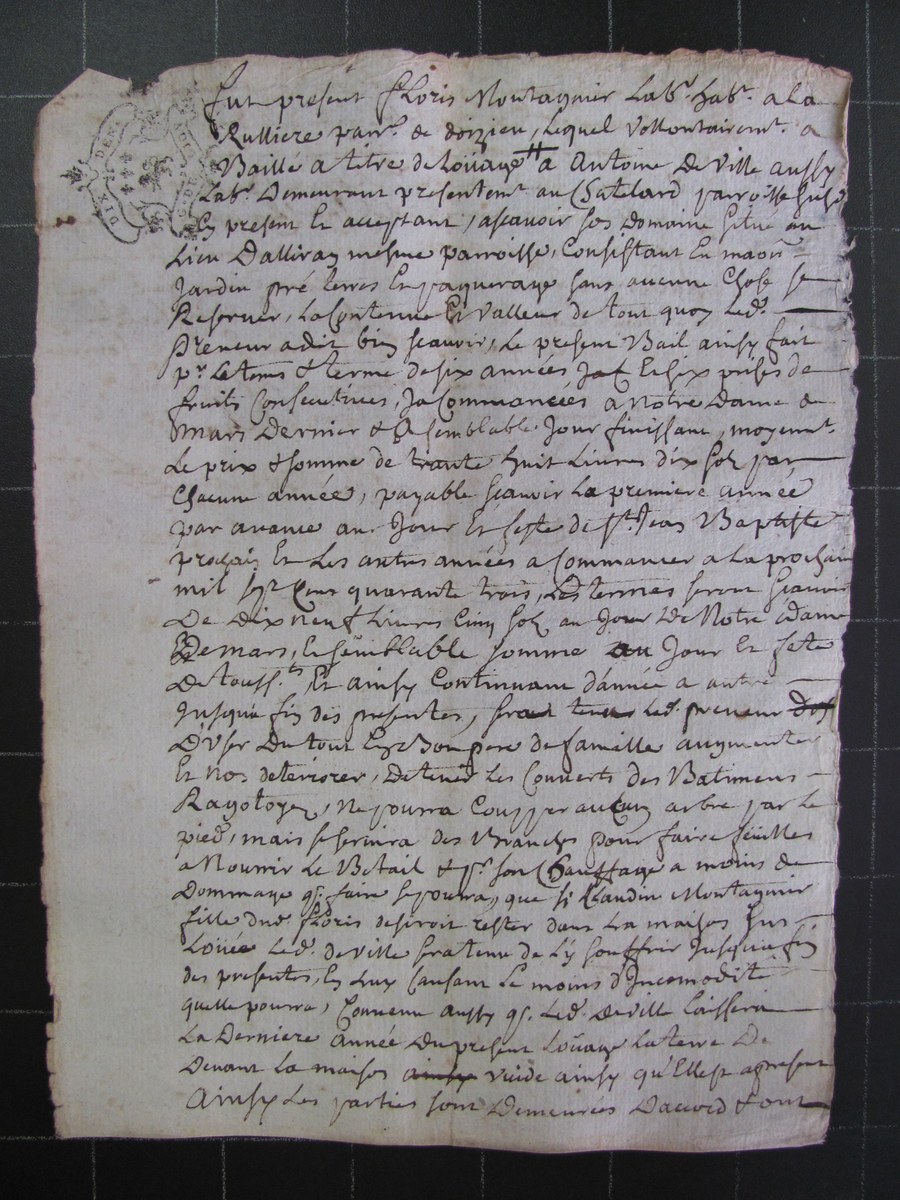 DIX DEN
Fut present Floris Montagnier Labr. habt. a la
Rulliere parr. de doizieu, lequel vollontairemt. a
Baillé a titre de Loüage a Antoine Deville aussy
Labr. Demeurant presentemt. au Chatelard parroisse susd.
Cy present Et acceptant, ascavoir son Domaine situé au
Lieu Dalliray mesme parroisse, Consistant En maon
Jardin pré terres Et paquerage sans aucune Chose se
Reserver, La Contenue Et valleur de tout quoy Led.
Preneur a dit bien scavoir, Le present Bail ainsy fait
pr. Le tems & terme de six années Et six prises de
fruits Consecutives, Ja Commancées a Notre Dame de
Mars Dernier & a semblable Jour finissant, moyent.
Le prix & somme de trante huit Livres dix solz par
Chacune année, payable scavoir La premiere année
par avance au Jour Et feste de St. Jean Baptiste
prochain Et Les autres années a Commancer a La prochai
mil sept Cens quarante trois, Les termes seront scavoir
De Dix neuf Livres Cinq solz au Jour De Notre Dame
De mars, Et semblable somme au Jour Et fete
De Touss.ts Et ainsy Continuant d'année a autre
Jusqu'a fin des presentes, sera tenu Led. preneur
D'User Du tout En Bon pere de famille augmenter
Et non deteriorer, De tenir Les Couverts des Batimens
Ragotoyés, Ne pourra Coupper aucun arbre par Le
pied, mais se servira des Branches pour faire feuilles
a Nourrir Le Betail & pr. son Chauffage a moins de
Dommage q. faire se pourra, que si Claudine Montagnier
fille dud. Floris desiroit rester dans La maison sus
Loüée Led. deville sera tenu de L'y souffrir Jusqu'a fin
des presentes, En Luy Causant Le moins d'Incomodité
quelle pourra, Convenu aussy q. Led. Deville Laissera
La Derniere année Du present Loüage La terre De
Devant La maison ainsy vuide ainsy qu'Elle est apresent
Ainsy Les parties sont Demeurées D'accord & ont